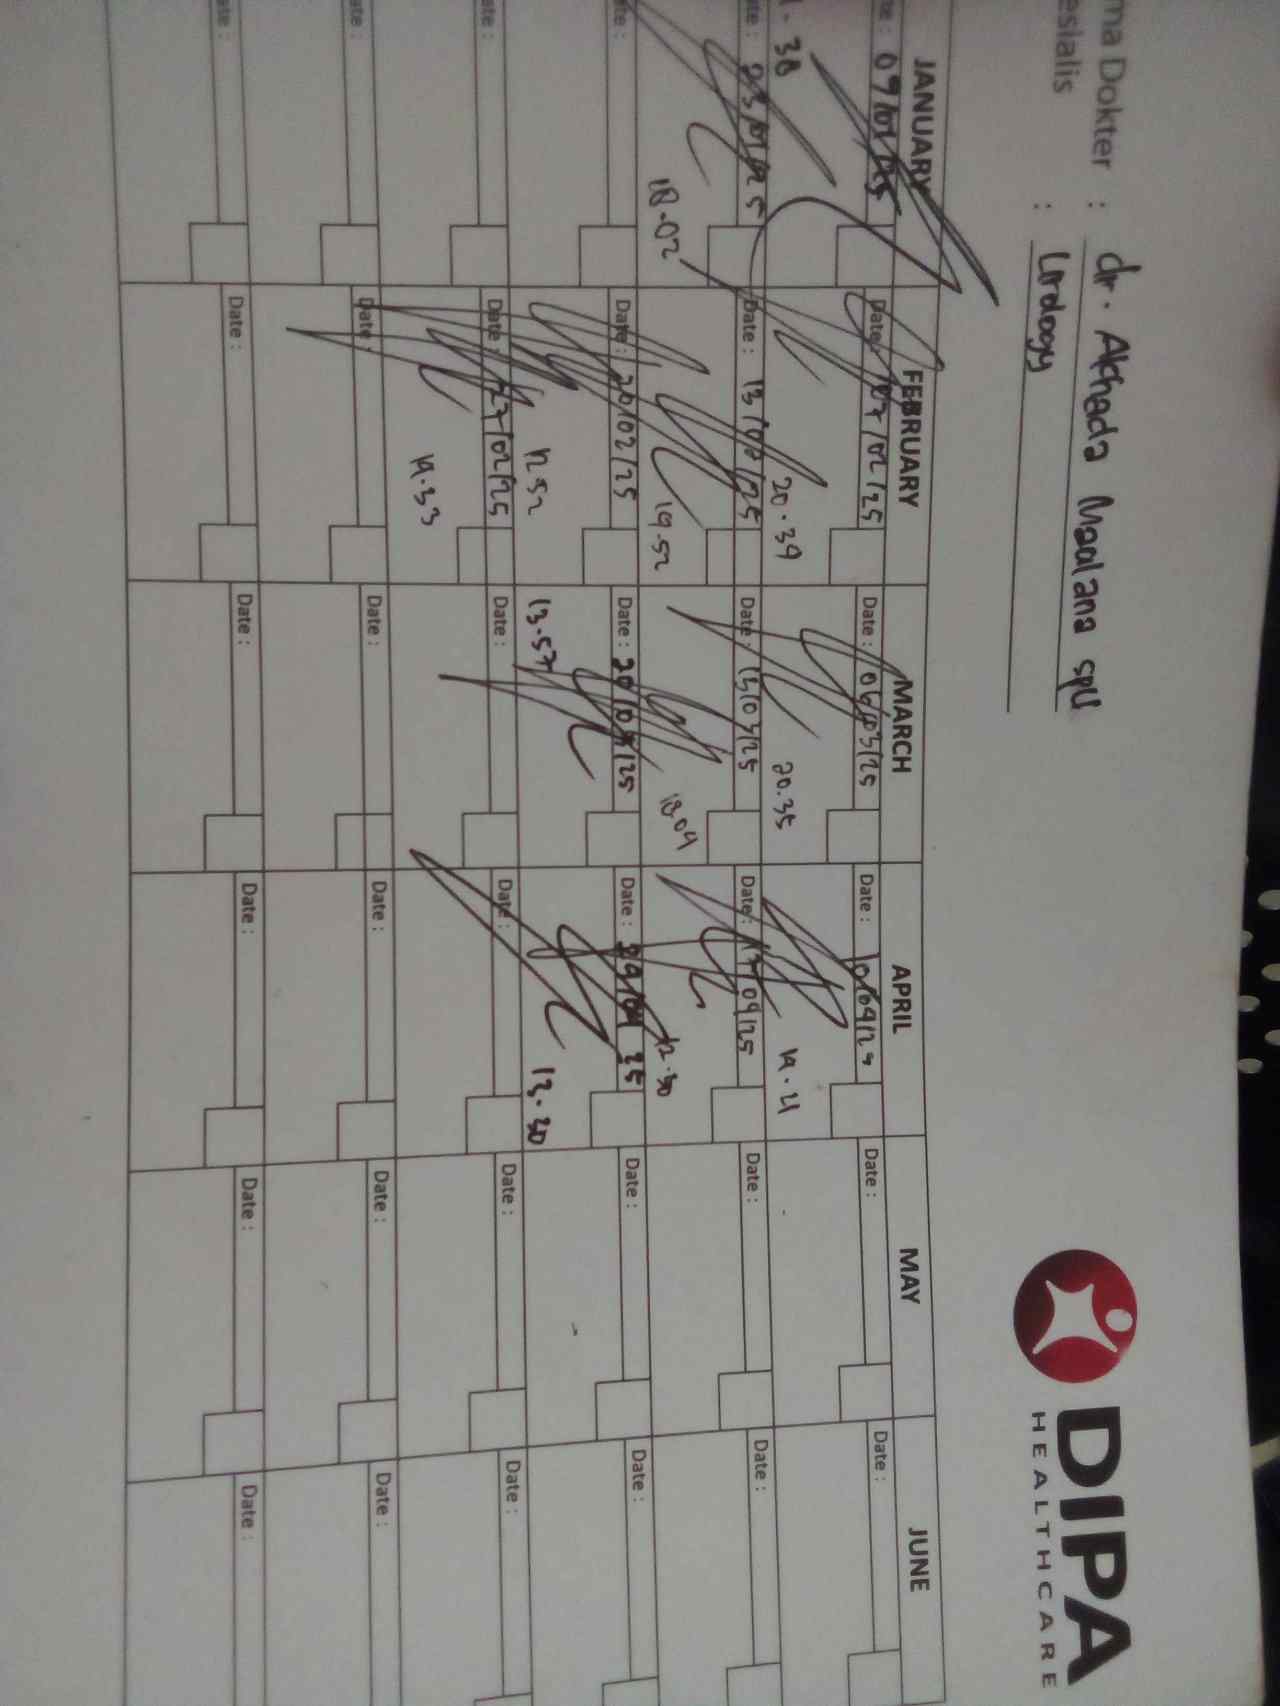 DIPA
HEALTHCARE
ma Dokter : dr. Akhada Maulana SpU
esialis : Urology
JANUARY FEBRUARY MARCH APRIL MAY JUNE
te: 09/01/25 Date: 07/02/25 Date: 06/03/25 Date: Date: Date:
38 20.39 20.35
te: 23/01/25 Date: 13/02/25 Date: 13/03/25 Date: 17/04/25 Date: Date:
18.02 19.52 18.04 12.30
te: Date: 20/02/25 Date: 20/03/25 Date: Date: Date:
12.52 13.57 13.30
ate: Date: 27/02/25 Date: Date: Date: Date:
19.33
ate: Date: Date: Date: Date: Date:
ate: Date: Date: Date: Date: Date: